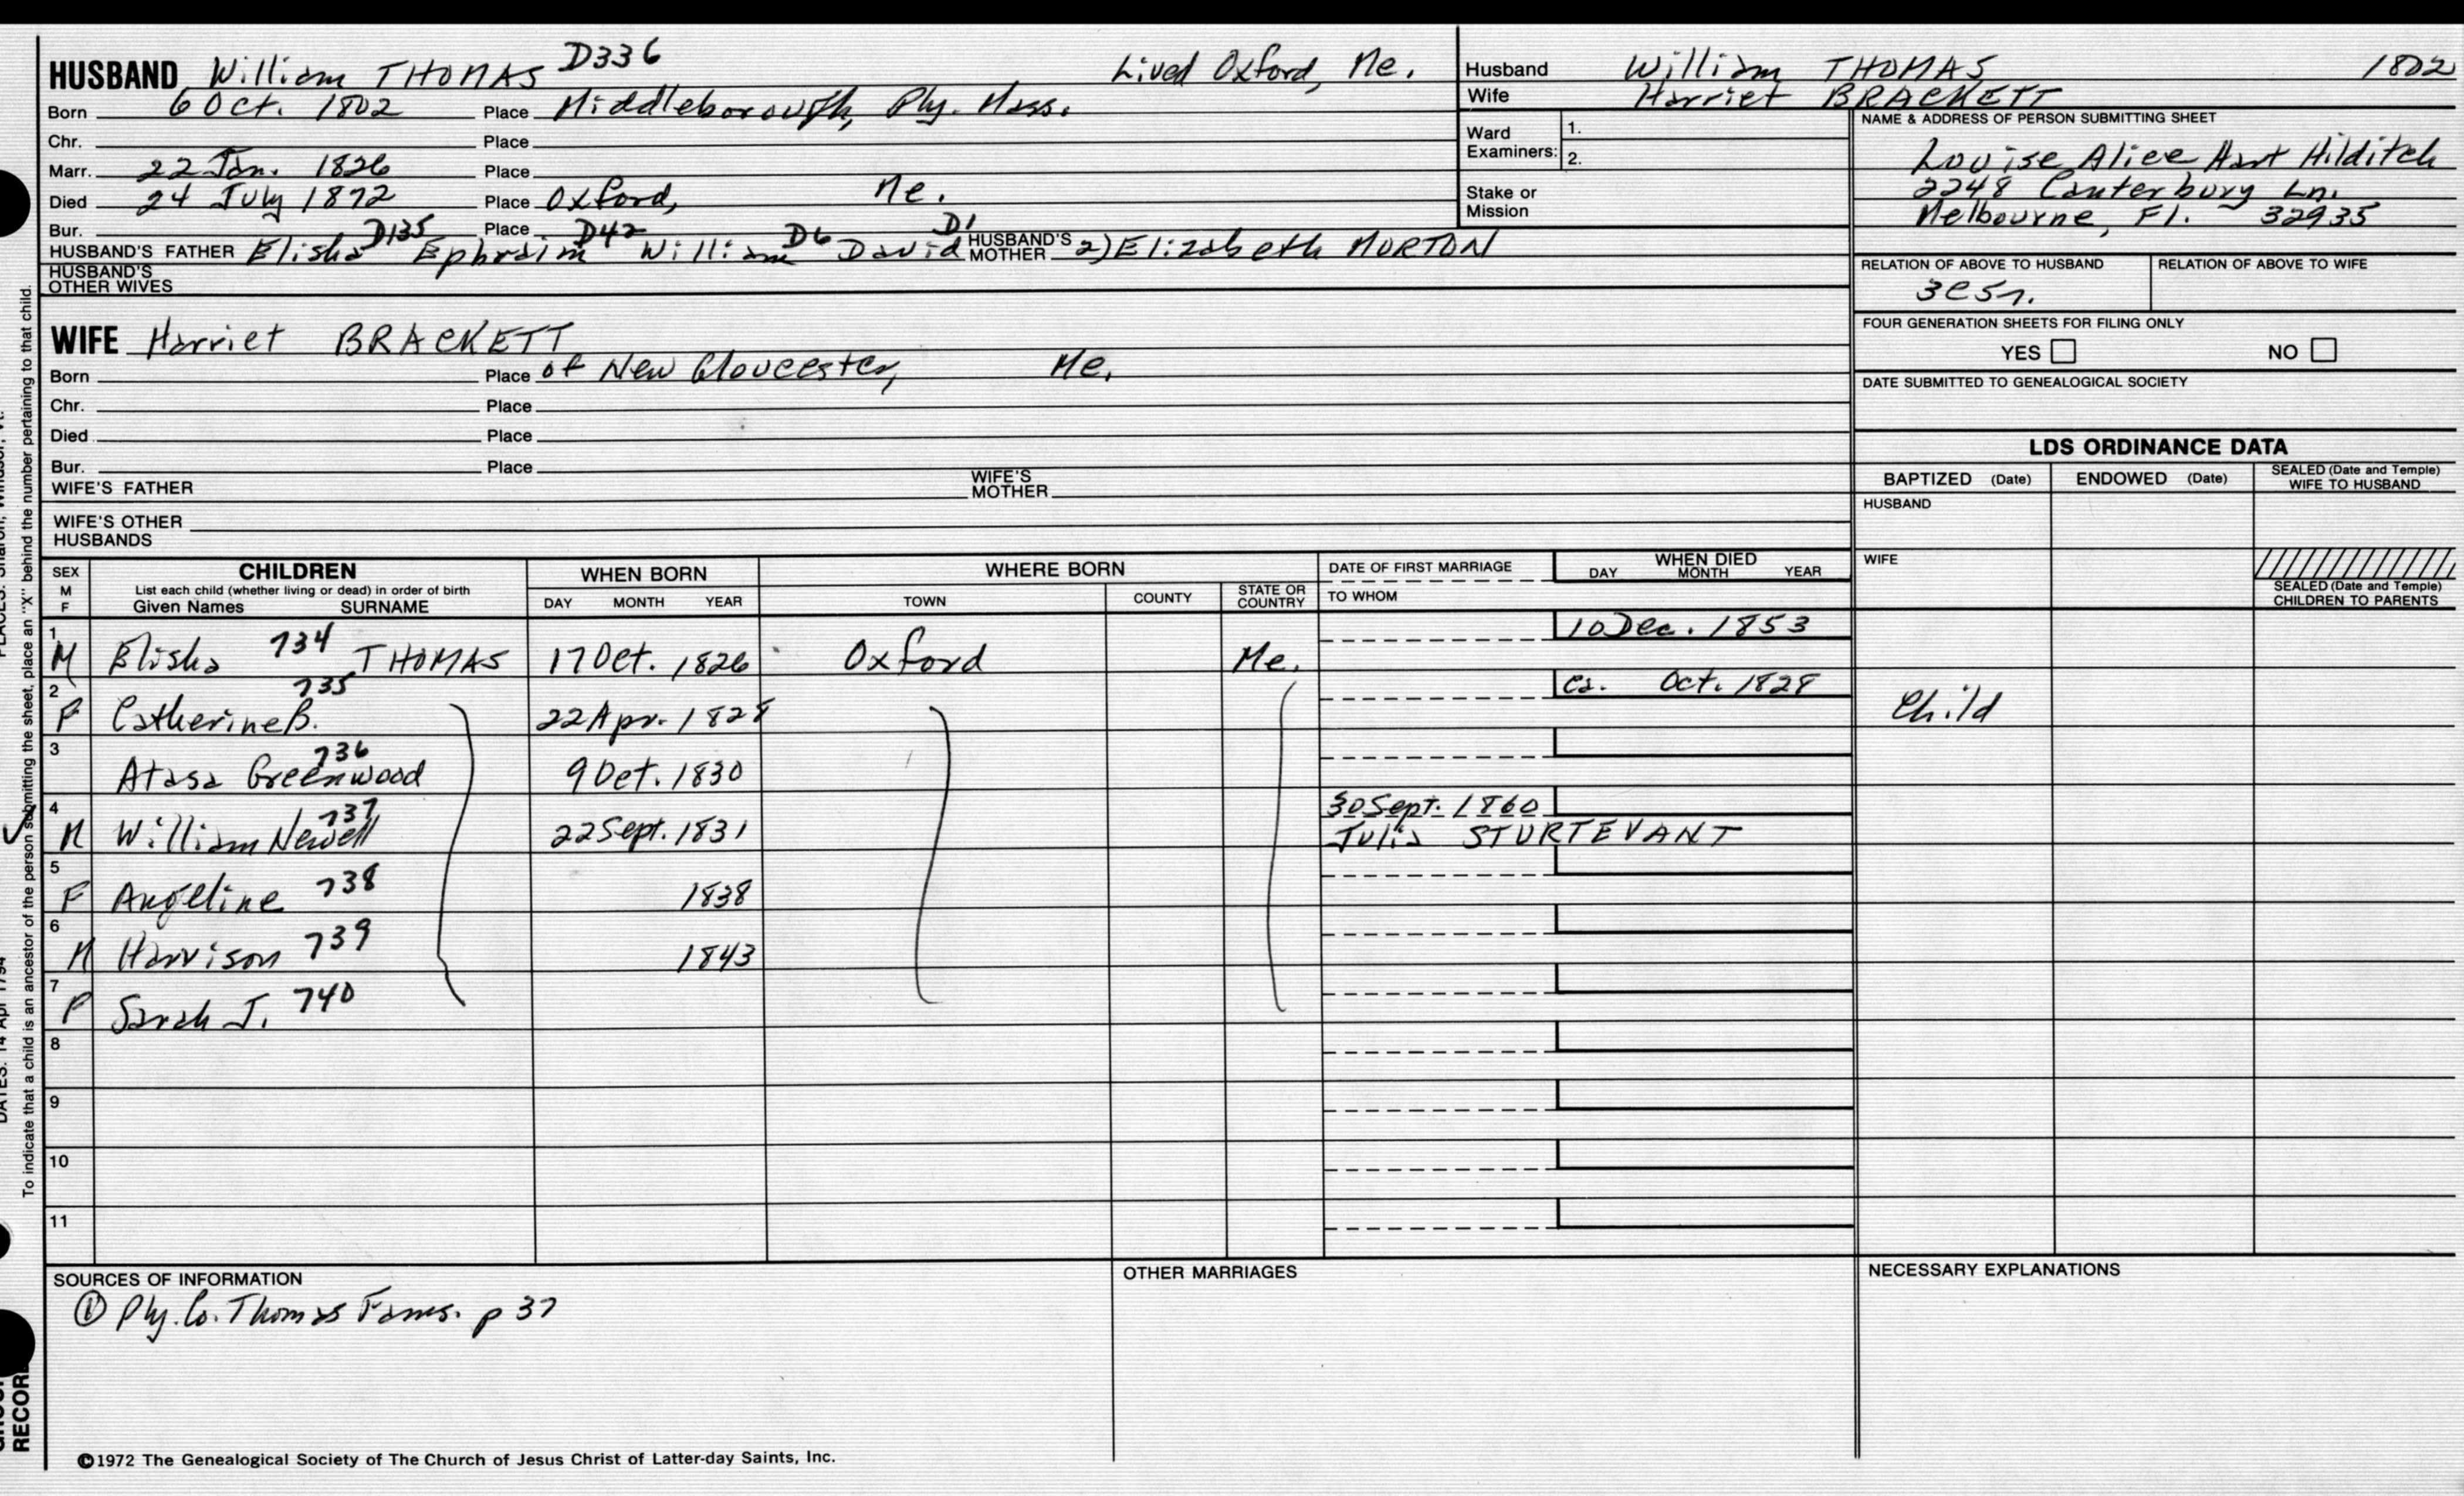 HUSBAND William THOMAS D336 Lived Oxford, Me.
Born 6 Oct. 1802 Place Middleborough, Ply. Mass.
Chr. Place
Marr. 22 Jan. 1826 Place
Died 24 July 1872 Place Oxford, Me.
Bur. Place
HUSBAND'S FATHER Elisha D135 Ephraim D42 William D6 David D1 HUSBAND'S MOTHER 2) Elizabeth MORTON
HUSBAND'S OTHER WIVES
Husband William THOMAS 1802
Wife Harriet BRACKETT
Ward Examiners: 1.
2.
Stake or Mission
NAME & ADDRESS OF PERSON SUBMITTING SHEET
Louise Alice Hart Hilditch
2248 Canterbury Ln.
Melbourne, Fl. 32935
RELATION OF ABOVE TO HUSBAND RELATION OF ABOVE TO WIFE
FOUR GENERATION SHEETS FOR FILING ONLY
YES NO
DATE SUBMITTED TO GENEALOGICAL SOCIETY
WIFE Harriet BRACKETT
Born Place of New Gloucester, Me.
Chr. Place
Died Place
Bur. Place
WIFE'S FATHER WIFE'S MOTHER
WIFE'S OTHER HUSBANDS
LDS ORDINANCE DATA
BAPTIZED (Date) ENDOWED (Date) SEALED (Date and Temple) WIFE TO HUSBAND
HUSBAND
WIFE
SEALED (Date and Temple) CHILDREN TO PARENTS
SEX M F CHILDREN WHEN BORN WHERE BORN DATE OF FIRST MARRIAGE WHEN DIED
List each child (whether living or dead) in order of birth
Given Names SURNAME DAY MONTH YEAR TOWN COUNTY STATE OR COUNTRY TO WHOM DAY MONTH YEAR
1 M Elisha 734 THOMAS 17 Oct. 1826 Oxford Me. 10 Dec. 1853
2 F Catherine B. 735 22 Apr. 1828 ca. Oct. 1828 Child
3 Atasa Greenwood 736 9 Oct. 1830
4 M William Newell 737 22 Sept. 1831 30 Sept. 1860
Julia STURTEVANT
5 F Angeline 738 1838
6 M Harrison 739 1843
7 F Sarah J. 740
8
9
10
11
SOURCES OF INFORMATION
① Ply. Co. Thomas Fams. p 37
OTHER MARRIAGES
NECESSARY EXPLANATIONS
©1972 The Genealogical Society of The Church of Jesus Christ of Latter-day Saints, Inc.
To indicate that a child is an ancestor of the person submitting the sheet, place an "X" behind the number pertaining to that child.
RECORD